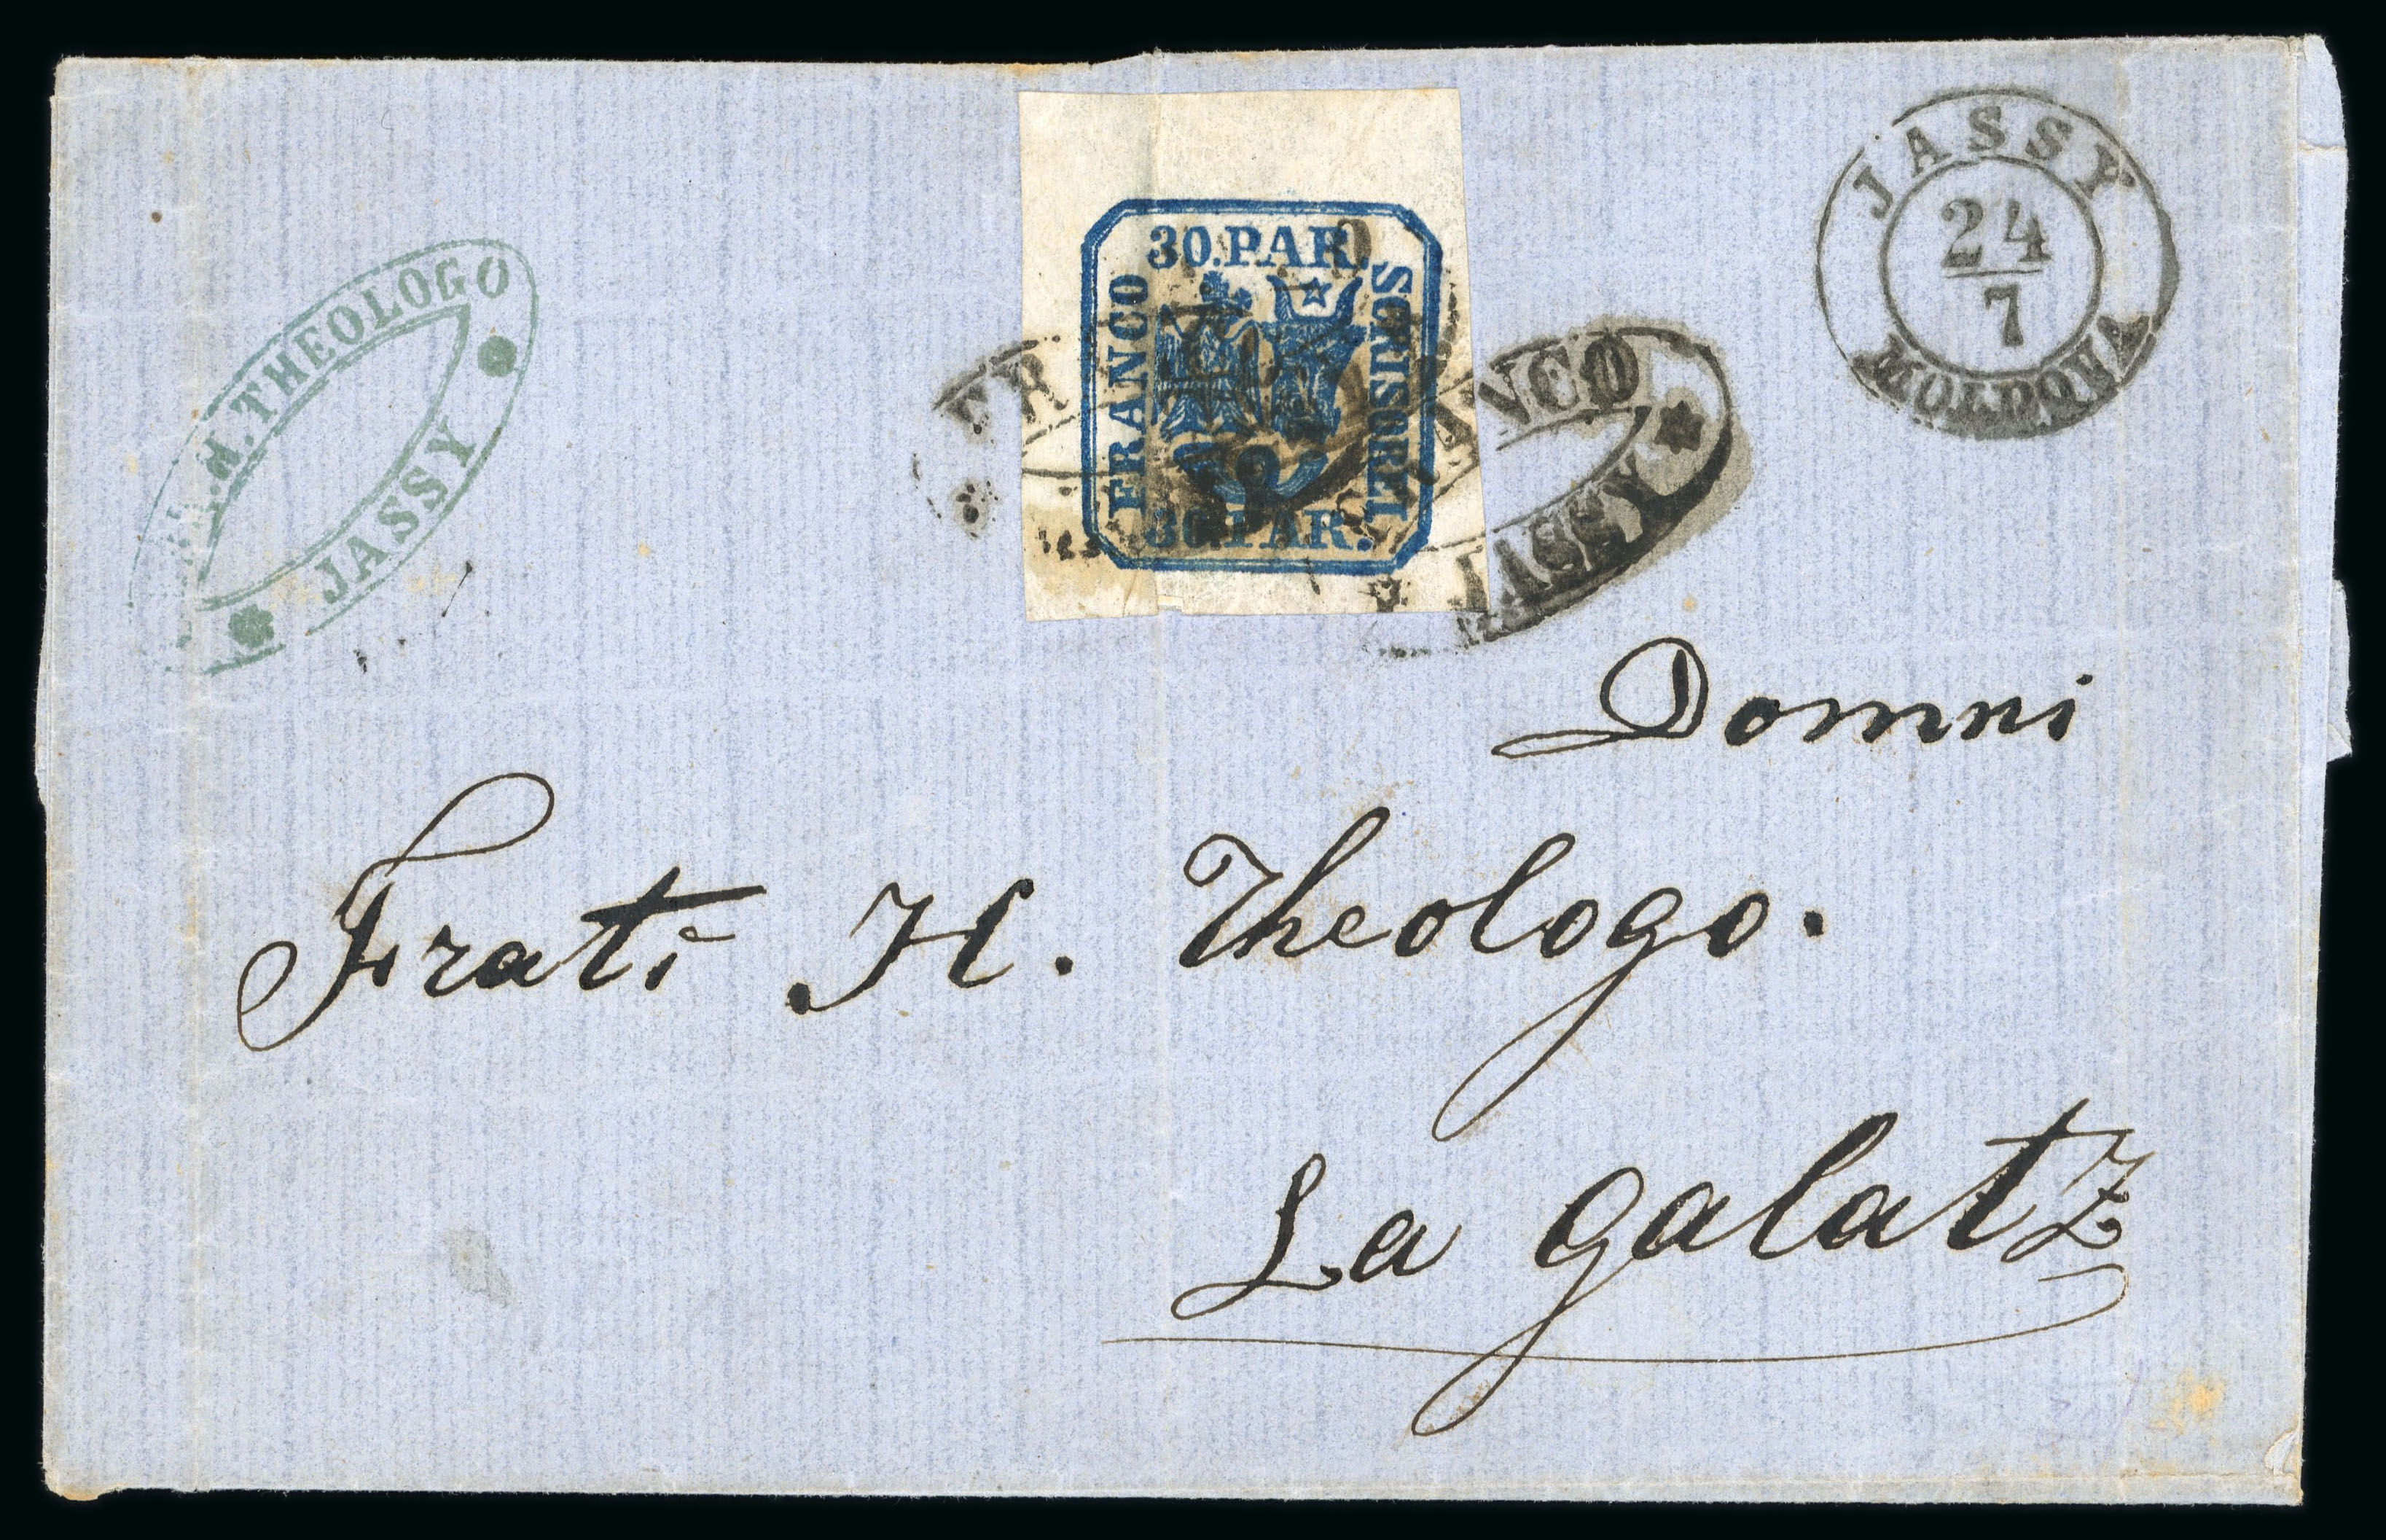 JASSY
24
7
MOLDOVA
M. THEOLOGO
JASSY
30.PAR.
FRANCO
SCRISOREI
30.PAR.
FR
FRANCO
JASSY
Domni
Frati H. Theologo.
La galatz